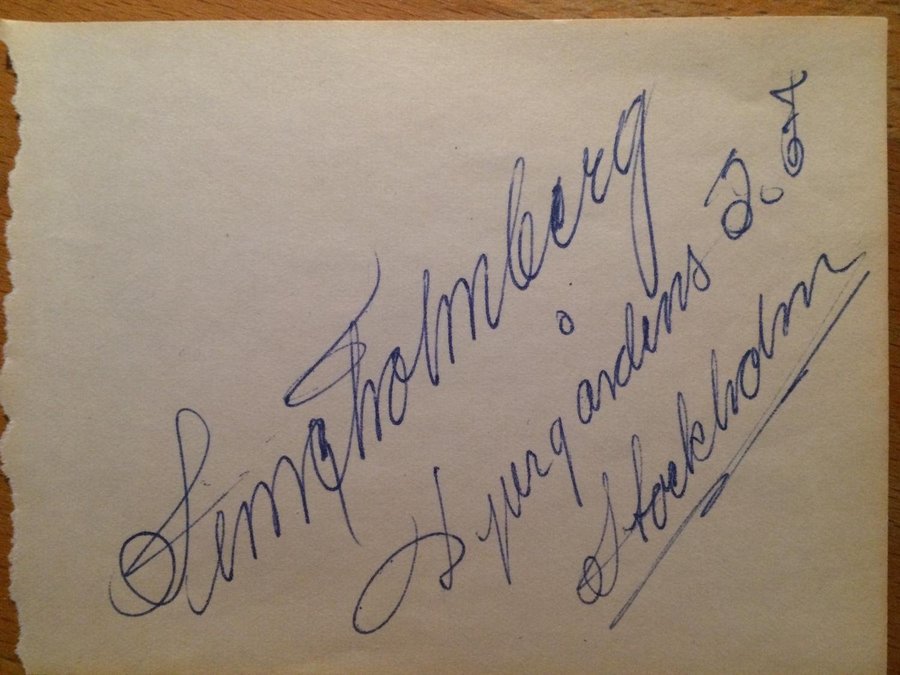 Holmberg
Djurgårdens I.F
Stockholm